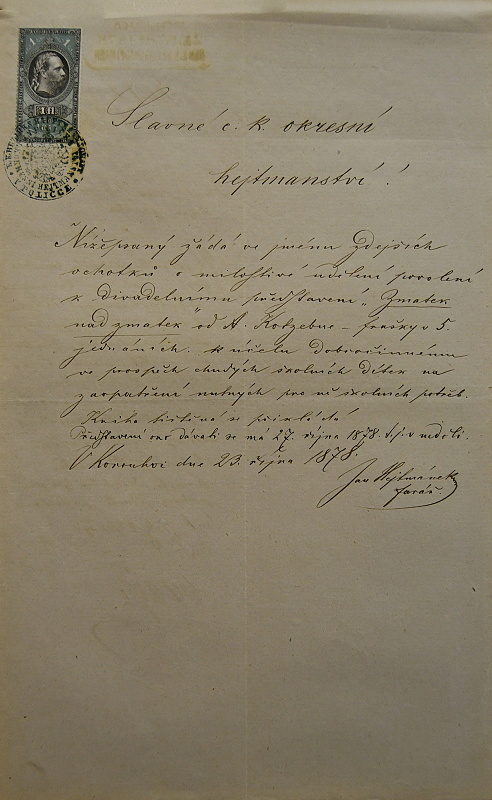 1 1
Slavné c. k. okresní
hejtmanství!
Nížepsaný žádá ve jménu zdejších
ochotníků o milostivé udělení povolení
k divadelnímu představení „Zmatek
nad zmatek" od A. Kotzebue – frašky v 5
jednáních. k účelu dobročinnému
ve prospěch chudých školních dítek na
zaopatření nutných pro ně školních potřeb.
Kniha tištěná se přikládá
Představení ono dávati se má 27. října 1878. t. j. v neděli.
V Korouhvi dne 23. října 1878.
Jan Hejtmánek
farář.
V POLIČCE